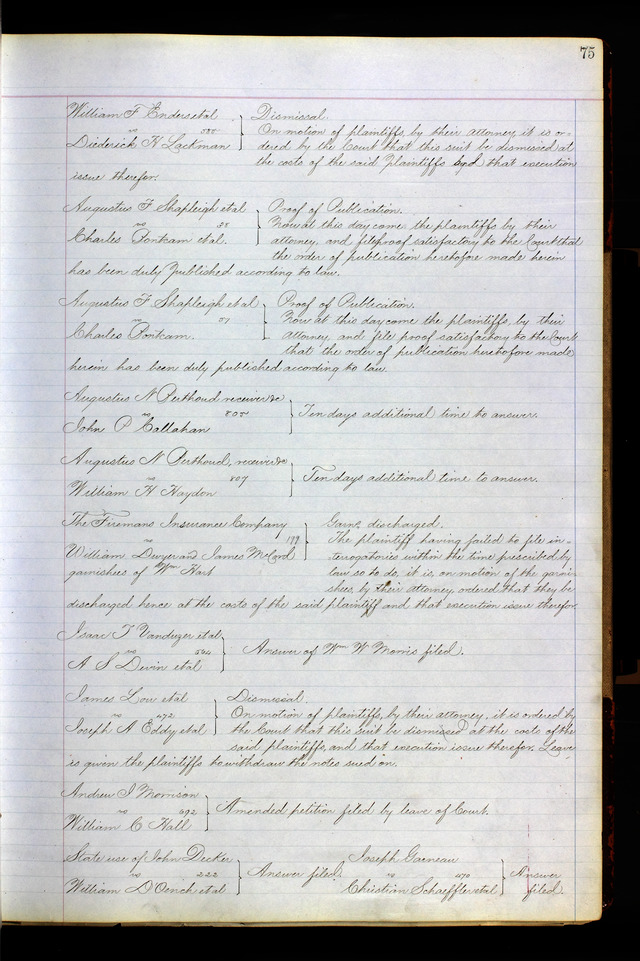 75
William F Enders et al } Dismissal.
vs 588 On motion of plaintiffs, by their attorney, it is or-
Diederick H Lackman dered by the Court that this suit be dismissed at
the costs of the said plaintiffs and that execution
issue therefor.
Augustus F Shapleigh et al } Proof of Publication.
vs 38 Now at this day come the plaintiffs by their
Charles Pontram et al. attorney, and file proof satisfactory to the Court that
the order of publication heretofore made herein
has been duly published according to law.
Augustus F Shapleigh et al } Proof of Publication.
vs 37 Now at this day come the plaintiffs, by their
Charles Pontram. attorney and file proof satisfactory to the Court
that the order of publication heretofore made
herein has been duly published according to law.
Augustus N Perthoud receiver &c
vs 804 } Ten days additional time to answer.
John P Callahan
Augustus N Perthoud, receiver &c
vs 807 } Ten days additional time to answer.
William H Haydon
The Firemans Insurance Company } Garns. discharged.
vs 199 The plaintiff having failed to file in-
William Dwyer and James McCord terrogatories within the time prescribed by
garnishees of Wm Hart law so to do, it is, on motion of the garni-
shees by their attorney, ordered that they be
discharged hence at the costs of the said plaintiff and that execution issue therefor.
Isaac T Vanduzer et al
vs 564 } Answer of Wm W Morris filed.
A S Devin et al
James Low et al } Dismissal.
vs 472 On motion of plaintiffs, by their attorney, it is ordered by
Joseph A Eddy et al the Court that this suit be dismissed at the costs of the
said plaintiffs, and that execution issue therefor. Leave
is given the plaintiffs to withdraw the notes sued on.
Andrew J Morrison
vs 692 } Amended petition filed by leave of Court.
William C Hall
State use of John Decker } Answer filed. Joseph Garneau } Answer
vs 222 vs 470
William D'Oench et al Christian Schaeffler et al filed.